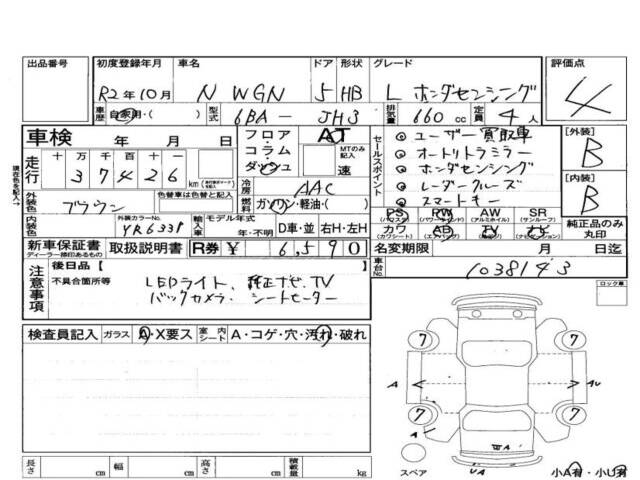 出品番号 初度登録年月 車名 ドア 形状 グレード 評価点
R2年10月 N WGN 5 HB L ホンダセンシング 4
車歴 自家用・( ) 型式 6BA－JH3 排気量 660 cc 定員 4人
車検 年 月 日 フロア・コラム・ダッシュ AT MTのみ記入 速
セールスポイント
ユーザー買取車
オートリトラミラー
ホンダセンシング
レーダークルーズ
スマートキー
[外装] B
[内装] B
走行 十 万 千 百 十 一
3 7 4 2 6 km
冷房 AAC
燃料 ガソリン・軽油・( )
外装色 ブラウン 色替車は色替と記入
内装色 外装カラーNo. YR633P 輸入車 モデル年式 年・不明 D車・並 右H・左H
PS (パワーステアリング) PW (パワーウインドウ) AW (アルミホイル) SR (サンルーフ)
カワ (カワシート) AB (エアバッグ) TV ナビ (ナビゲーション)
純正品のみ丸印
新車保証書 ディーラー捺印あるもの 取扱説明書 R券 ¥ 6,590
名変期限 月 日迄
車台No. 1038143
注意事項 後日品 [ ]
不具合箇所等 LEDライト、純正ナビ、TV
バックカメラ、シートヒーター
ロック車
検査員記入 ガラス A・X要ス 室内シート A・コゲ・穴・汚れ・破れ
7 7
A AU
7 7
A
UA
スペア 小A有・小U有
長さ cm 幅 cm 高さ cm 積載量 kg
現在色を記入→